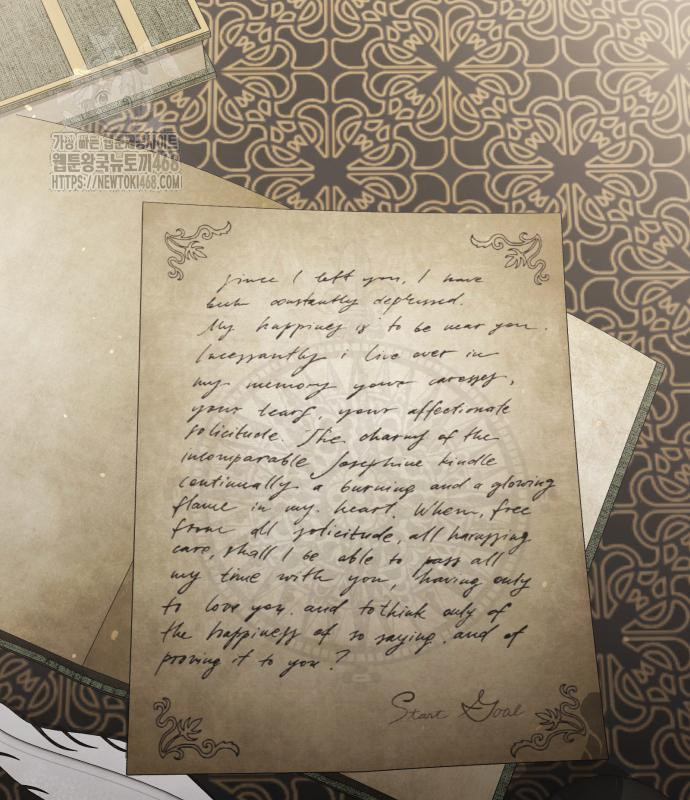 가장 빠른 웹툰제공사이트
웹툰왕국뉴토끼468
HTTPS://NEWTOKI468.COM
since I left you, I have
been constantly depressed.
My happines is to be near you.
Incessantly i live over in
my memory your caresses,
your tears, your affectionate
solicitude. The charms of the
incomparable Josephine kindle
continually a burning and a glowing
flame in my heart. When, free
from all solicitude, all harassing
care, shall I be able to pass all
my time with you, having only
to love you, and to think only of
the happiness of so saying, and of
proving it to you?
Start Goal